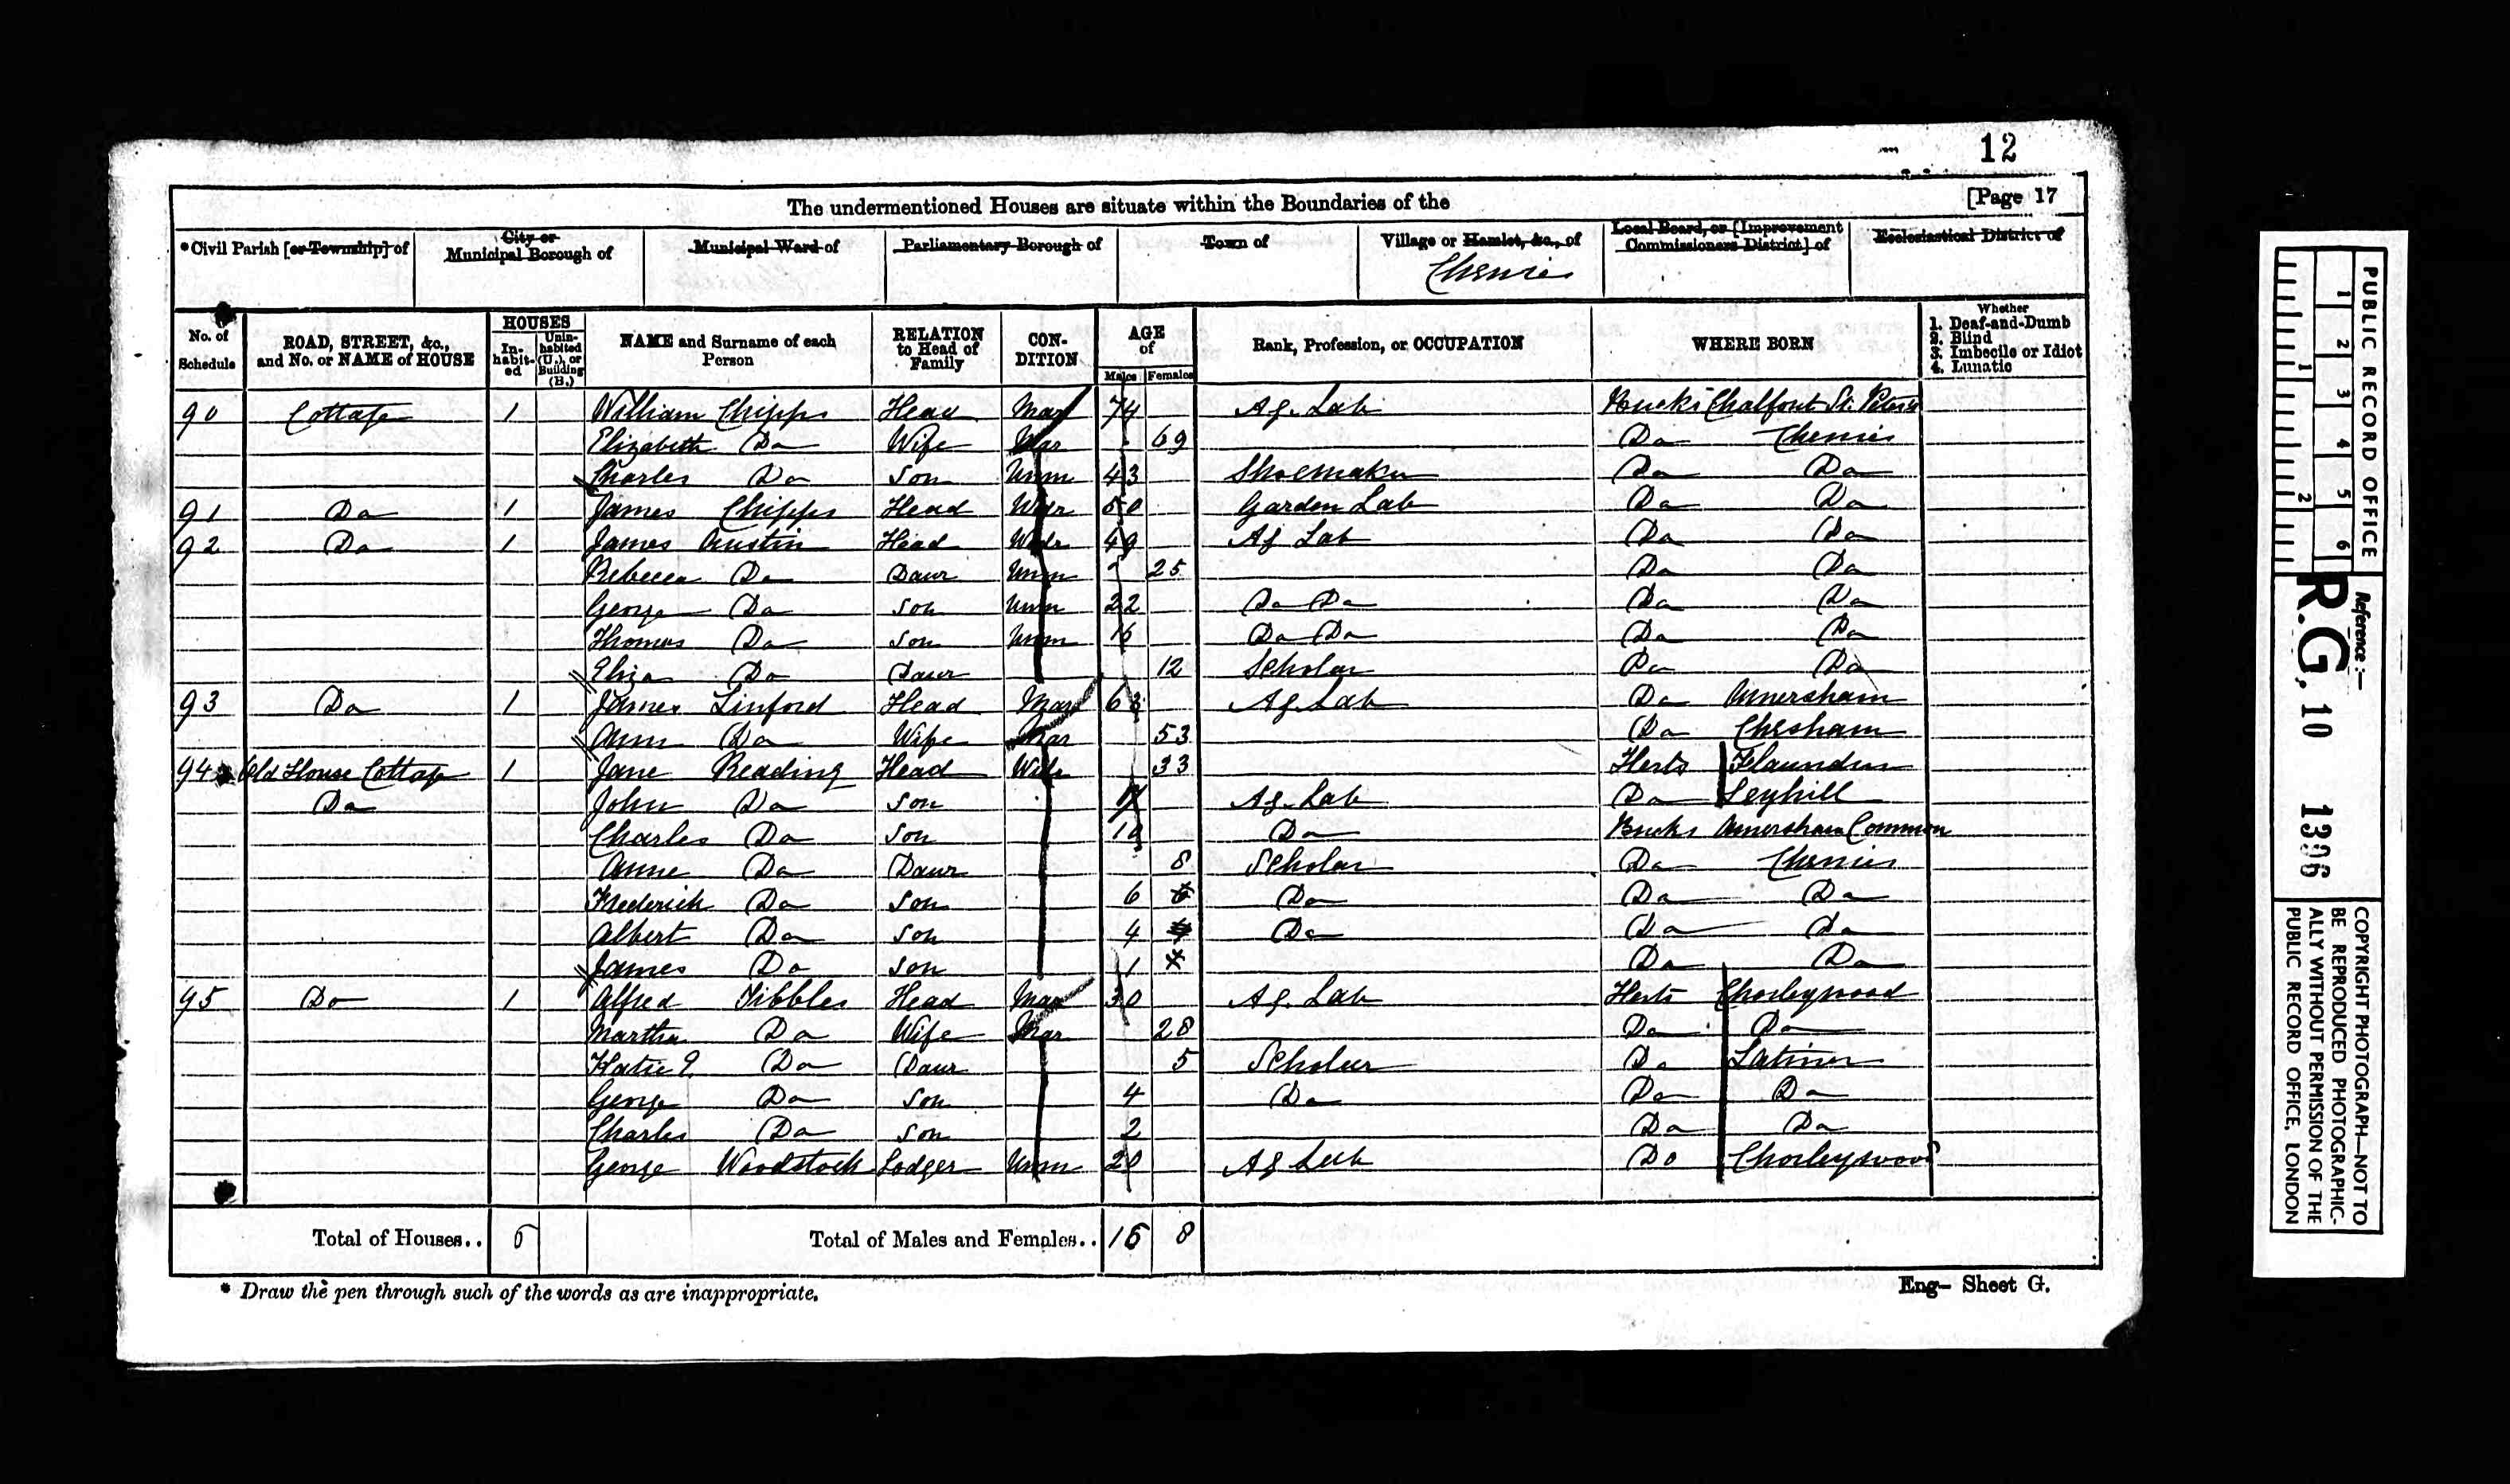 12
[Page 17
The undermentioned Houses are situate within the Boundaries of the
*Civil Parish [or Township] of
City or Municipal Borough of
Municipal Ward of
Parliamentary Borough of
Town of
Village or Hamlet, &c., of
Chenies
Local Board, or [Improvement Commissioners District] of
Ecclesiastical District of
No. of Schedule
ROAD, STREET, &c., and No. or NAME of HOUSE
HOUSES
In-habit-ed
Unin-habited (U.), or Building (B.)
NAME and Surname of each Person
RELATION to Head of Family
CON-DITION
AGE of
Males Females
Rank, Profession, or OCCUPATION
WHERE BORN
Whether
1. Deaf-and-Dumb
2. Blind
3. Imbecile or Idiot
4. Lunatic
90 Cottage 1 William Chipps Head Mar 74 Ag. Lab Bucks Chalfont St. Peters
Elizabeth Do Wife Mar 69 Do Chenies
Charles Do Son Unm 43 Shoemaker Do Do
91 Do 1 James Chipps Head Widr 50 Garden Lab Do Do
92 Do 1 James Austin Head Widr 49 Ag Lab Do Do
Rebecca Do Daur Unm 25 Do Do
George Do Son Unm 22 Do Do Do Do
Thomas Do Son Unm 16 Do Do Do Do
Eliza Do Daur 12 Scholar Do Do
93 Do 1 James Linford Head Mar Ag. Lab Do Amersham
Ann Do Wife Mar 53 Do Chesham
94 Old House Cottage 1 Jane Reading Head 33 Herts Flaunden
Do John Do Son Ag. Lab Do Leyhill
Charles Do Son 10 Do Bucks Amersham Common
Anne Do Daur 8 Scholar Do Chenies
Frederick Do Son 6 Do Do Do
Albert Do Son 4 Do Do Do
James Do Son 1 Do Do
95 Do 1 Alfred Tibbles Head Mar 30 Ag. Lab Herts Chorleywood
Martha Do Wife Mar 28 Do Do
Katie Do Daur 5 Scholar Do Latimer
George Do Son 4 Do Do Do
Charles Do Son 2 Do Do
George Woodstock Lodger Unm 20 Ag Lab Do Chorleywood
Total of Houses.. 6
Total of Males and Females.. 16 8
* Draw the pen through such of the words as are inappropriate.
Eng— Sheet G.
PUBLIC RECORD OFFICE
1 2 3 4 5 6
1 2
Reference :—
R.G. 10 1396
COPYRIGHT PHOTOGRAPH—NOT TO
BE REPRODUCED PHOTOGRAPHIC-
ALLY WITHOUT PERMISSION OF THE
PUBLIC RECORD OFFICE, LONDON